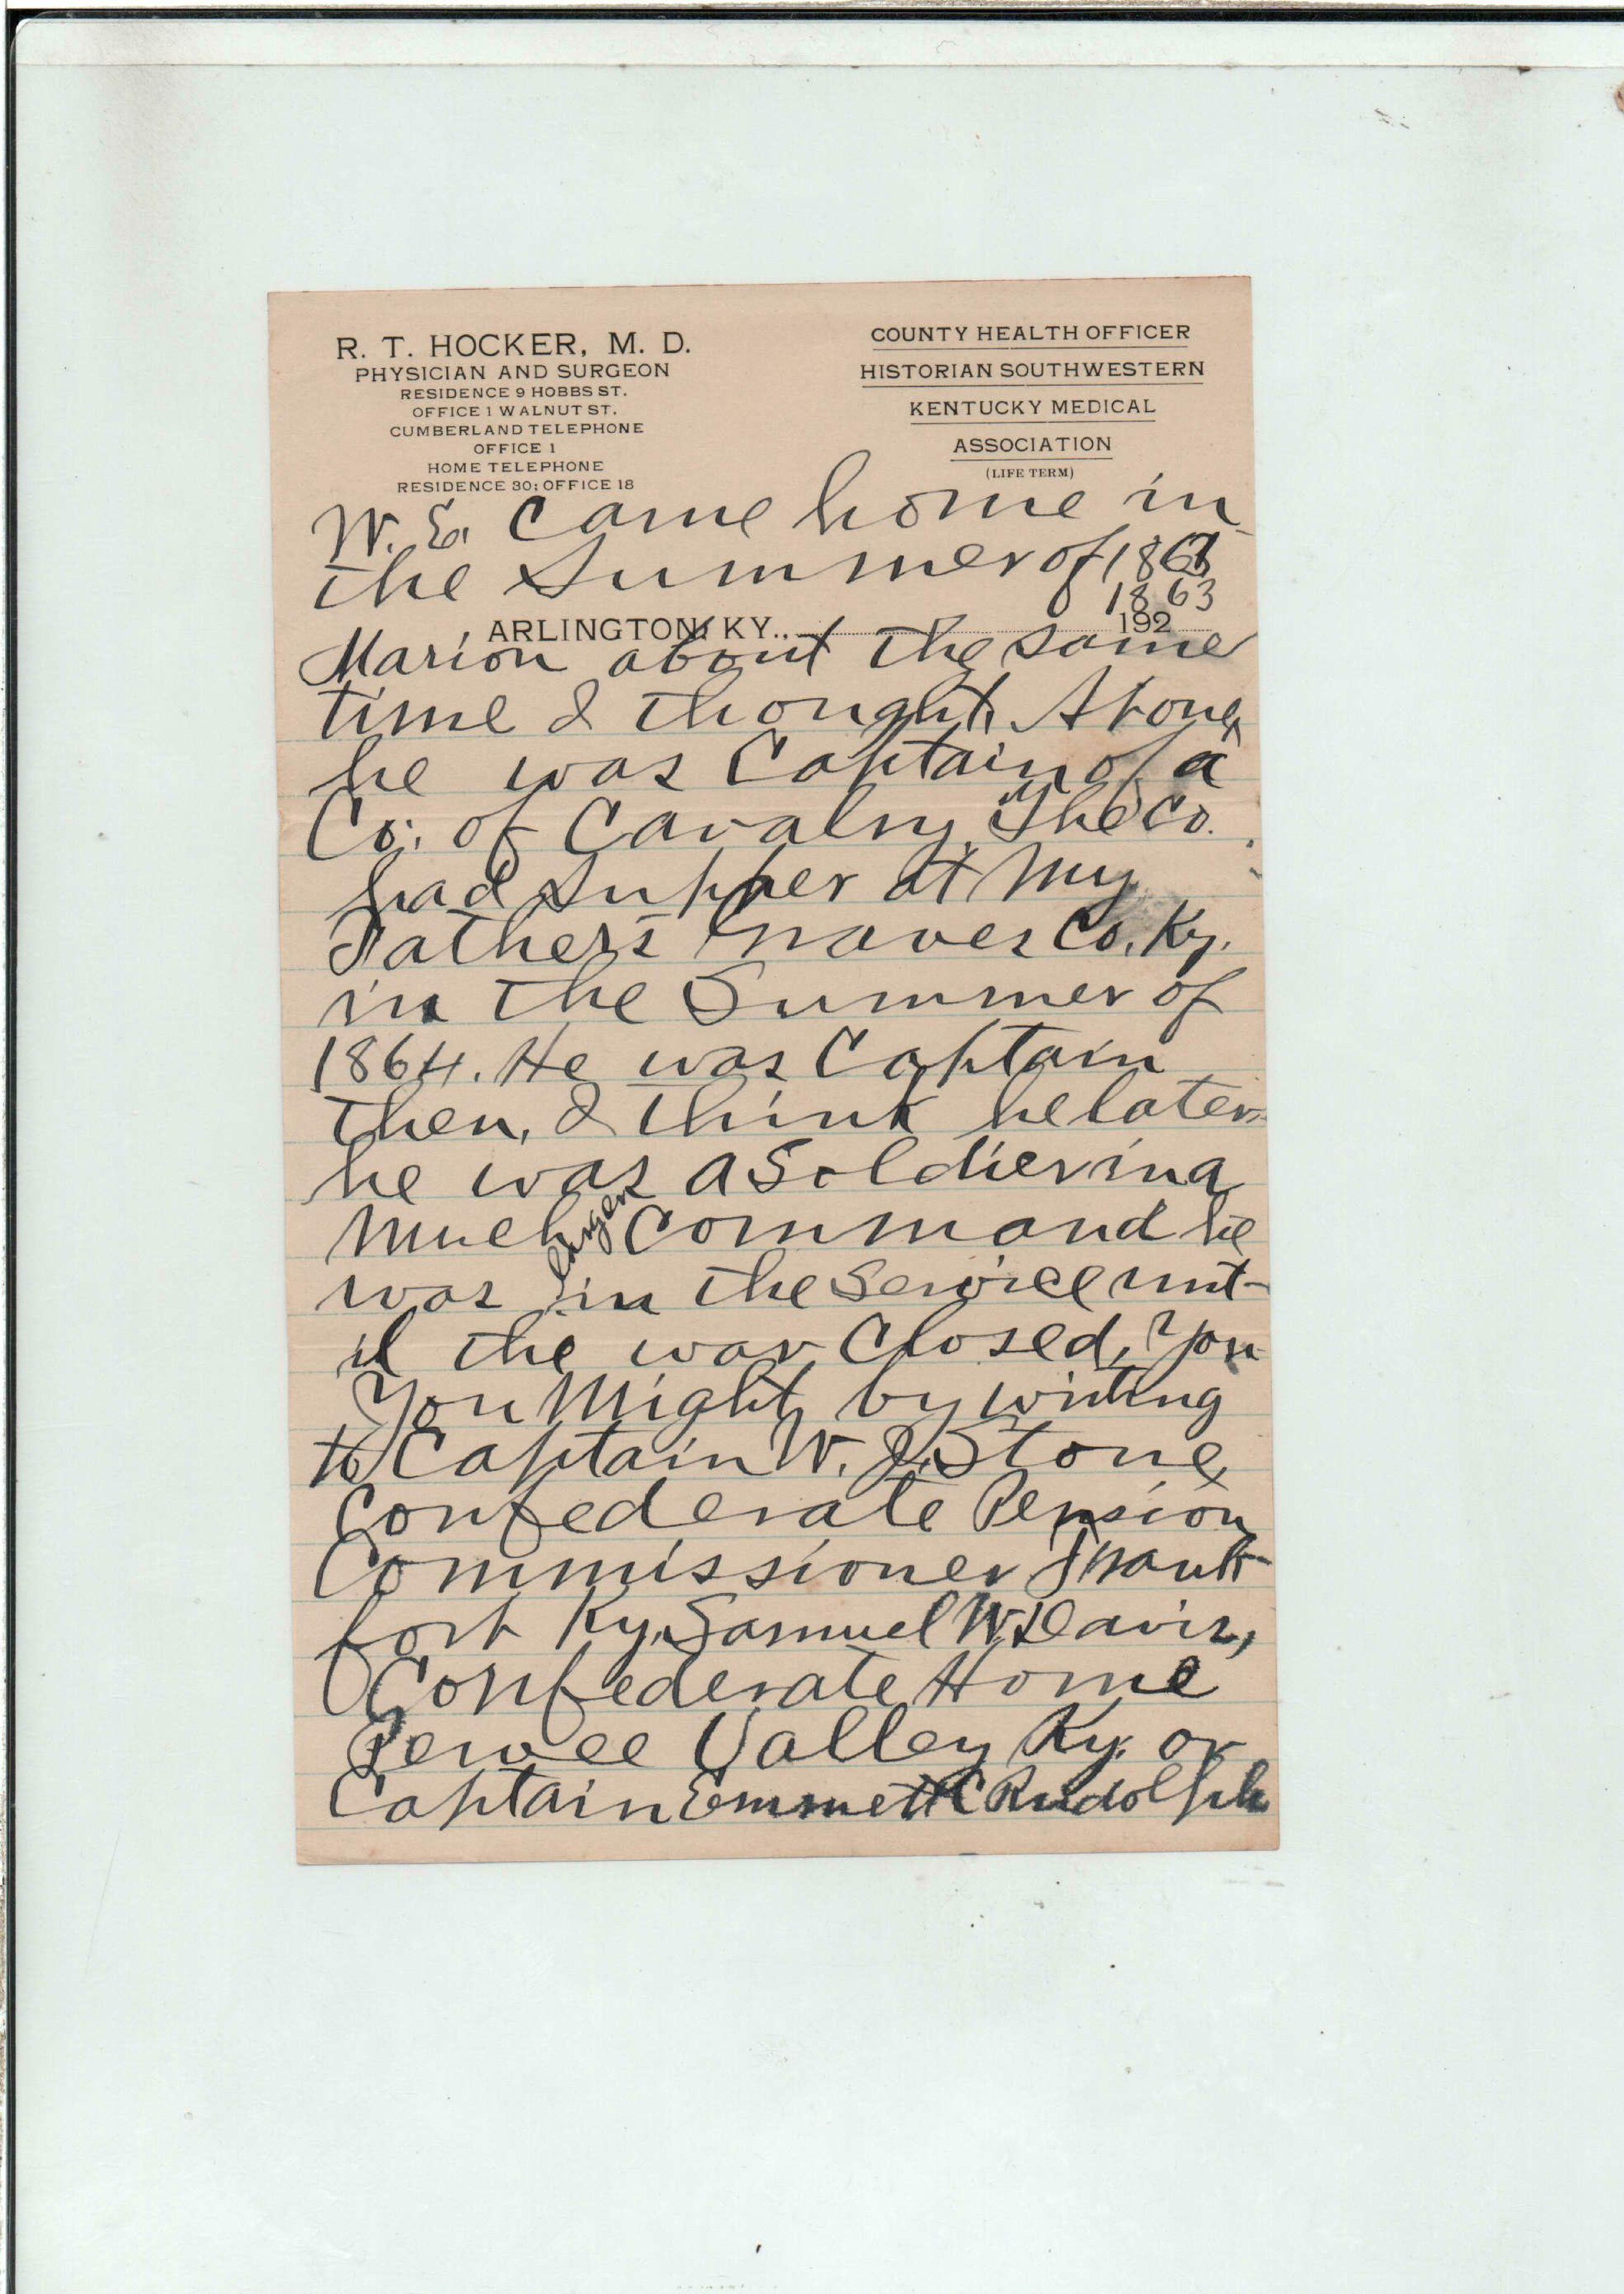 R. T. HOCKER, M. D.
PHYSICIAN AND SURGEON
RESIDENCE 9 HOBBS ST.
OFFICE 1 WALNUT ST.
CUMBERLAND TELEPHONE
OFFICE 1
HOME TELEPHONE
RESIDENCE 30; OFFICE 18
COUNTY HEALTH OFFICER
HISTORIAN SOUTHWESTERN
KENTUCKY MEDICAL
ASSOCIATION
(LIFE TERM)
W. E. Came home in
the Summer of 1863
1863
ARLINGTON, KY., 192
Marion about the same
time I thought
he was Captain of a
Co. of Cavalry, The Co.
had Supper at My
Father's Graves Co. Ky.
in the Summer of
1864. He was Captain
then, I think he later
he was a Soldier in a
Much larger Command he
was in the Service unt-
il the war Closed, You
You Might by writing
to Captain W. J. Stone
Confederate Pension
Commissioner Frank-
fort Ky. Samuel W. Davis,
Confederate Home
Pewee Valley Ky. or
Captain Emmett C Rudolph